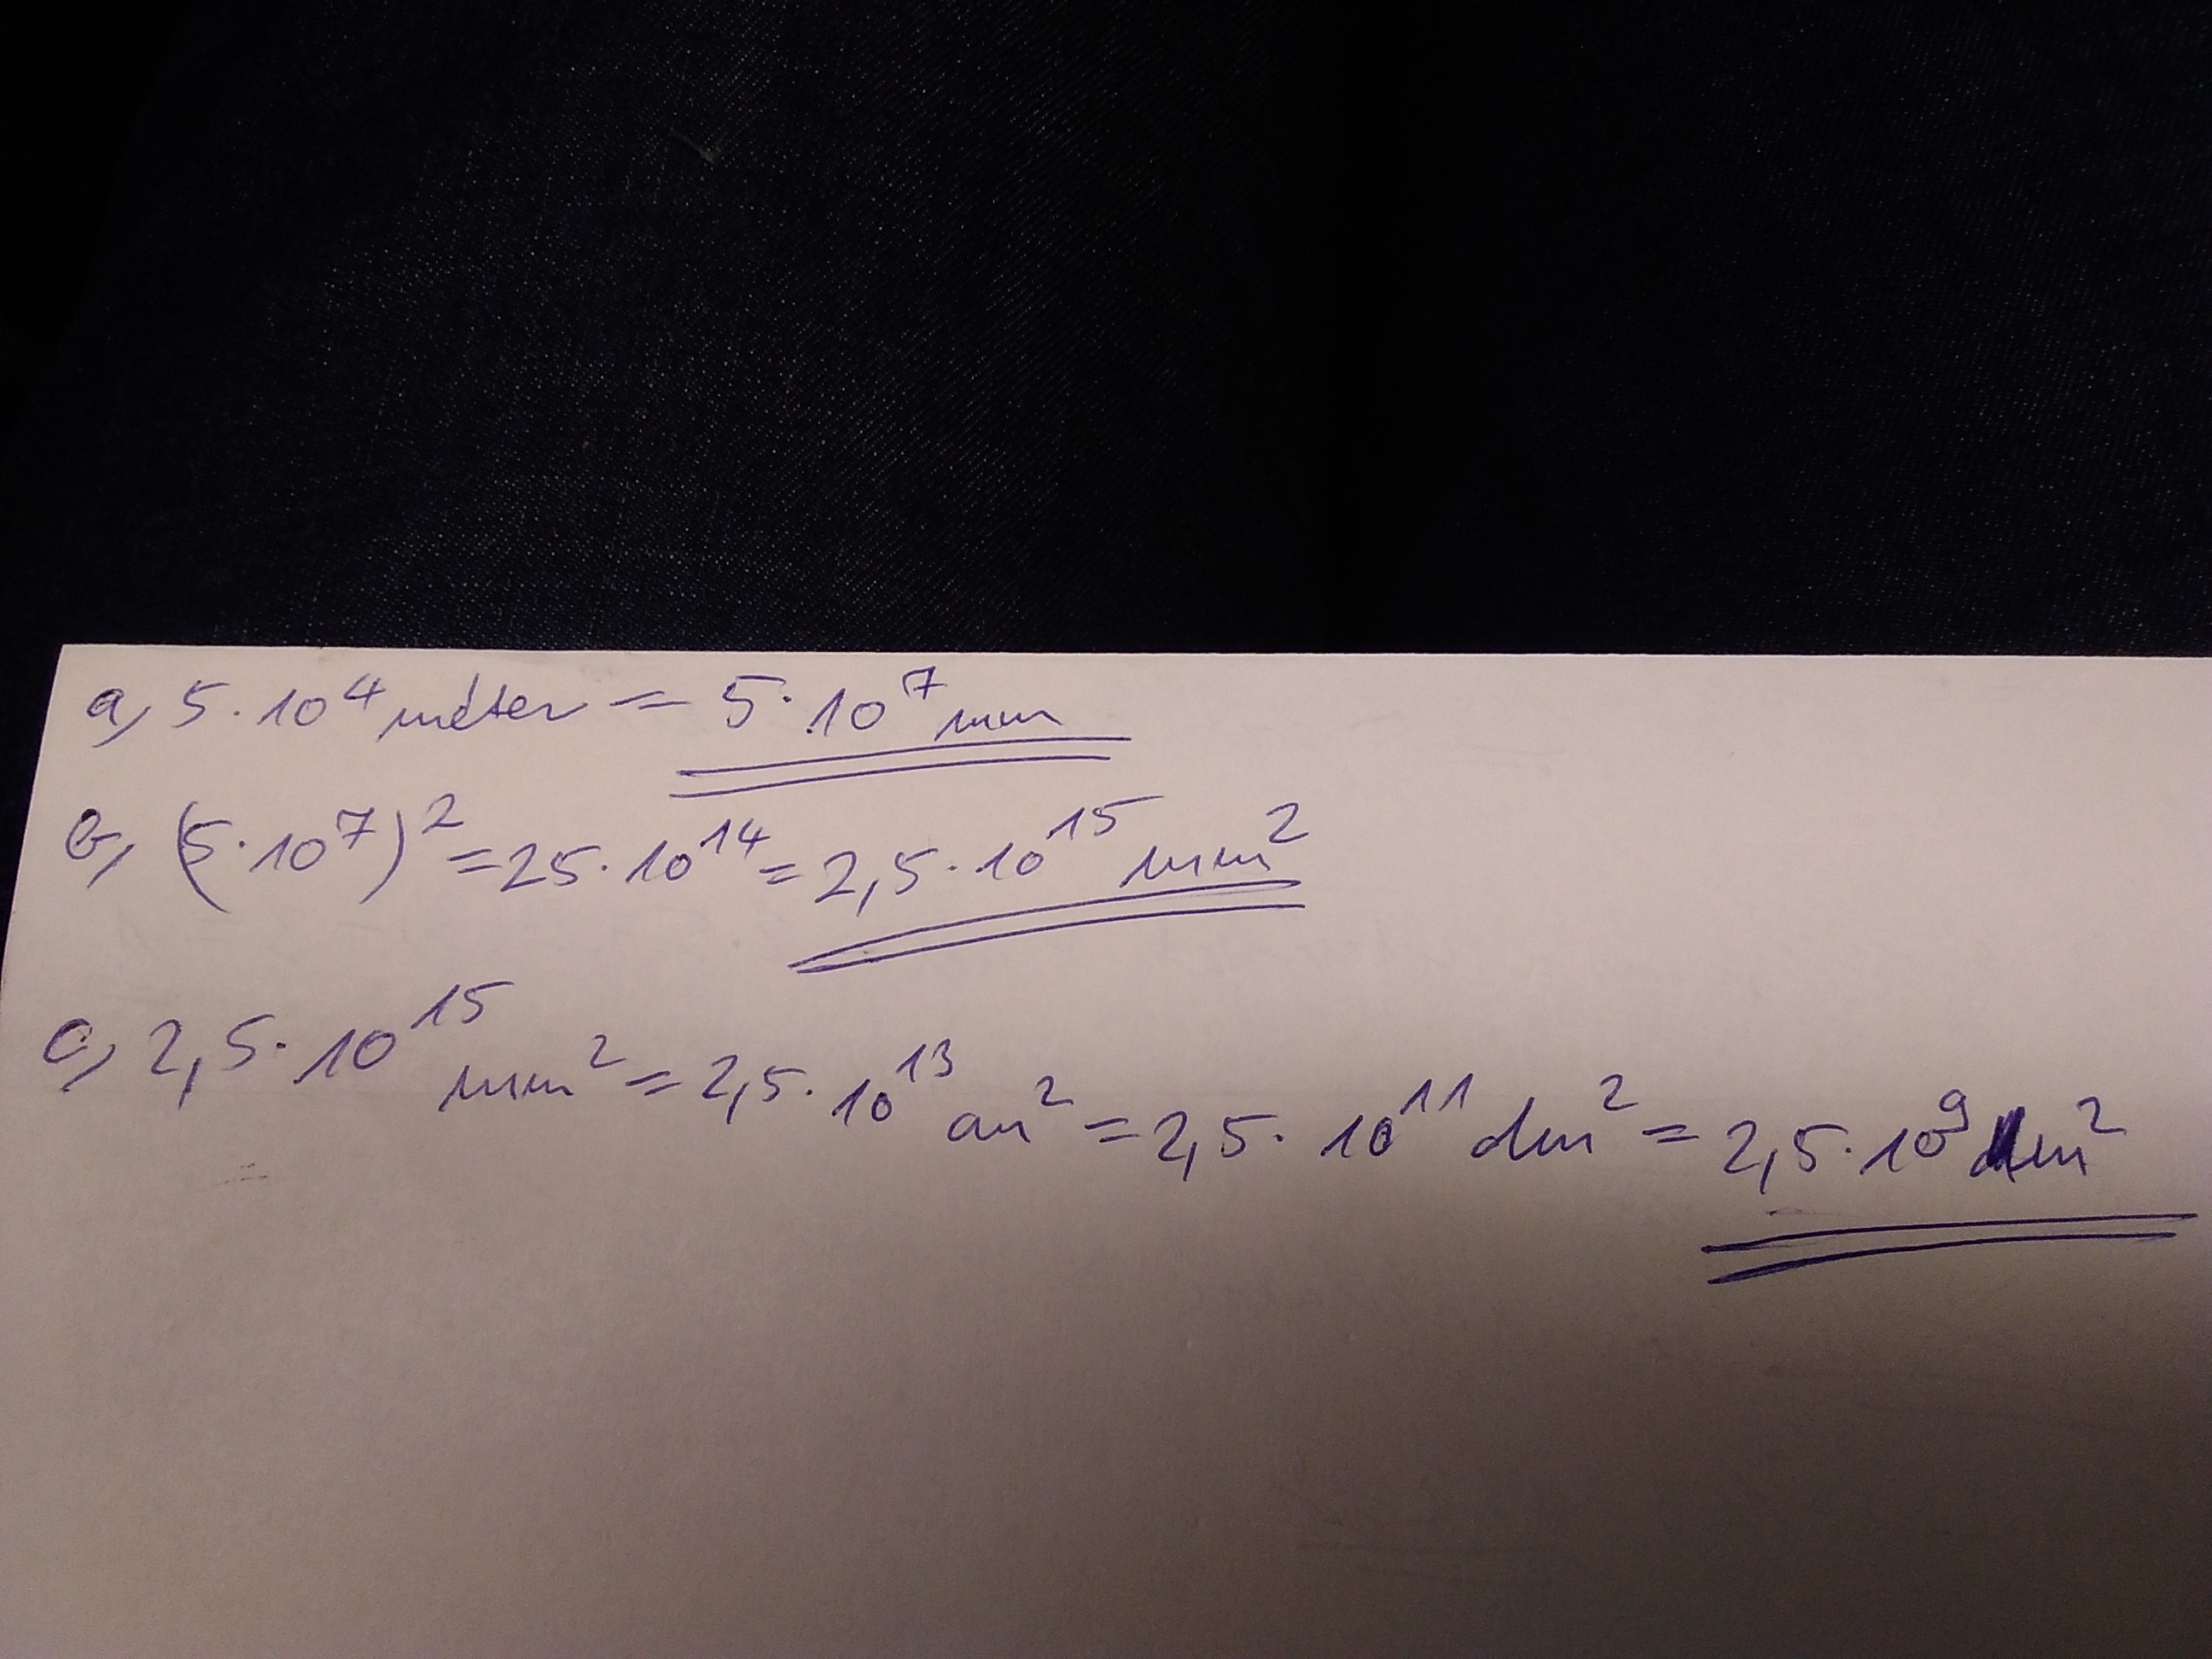 a, 5·10⁴ méter = 5·10⁷ mm
b, (5·10⁷)² = 25·10¹⁴ = 2,5·10¹⁵ mm²
c, 2,5·10¹⁵ mm² = 2,5·10¹³ cm² = 2,5·10¹¹ dm² = 2,5·10⁹ m²